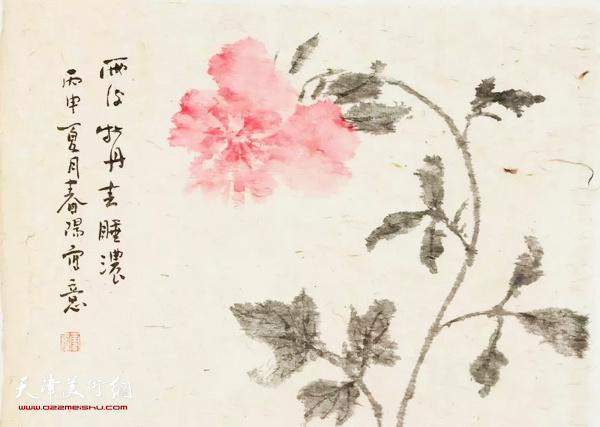 雨后牡丹春睡浓
丙申夏月春阳写意
天津美术网
www.022meishu.com